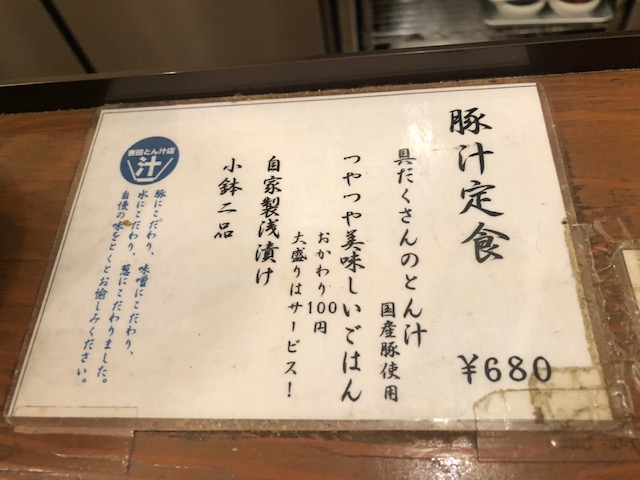 豚汁定食
¥680
具だくさんのとん汁
国産豚使用
つやつや美味しいごはん
おかわり100円
大盛りはサービス!
自家製浅漬け
小鉢二品
吉田とん汁店
汁
豚にこだわり、味噌にこだわり、
水にこだわり、葱にこだわりました。
自慢の味をとくとお愉しみください。